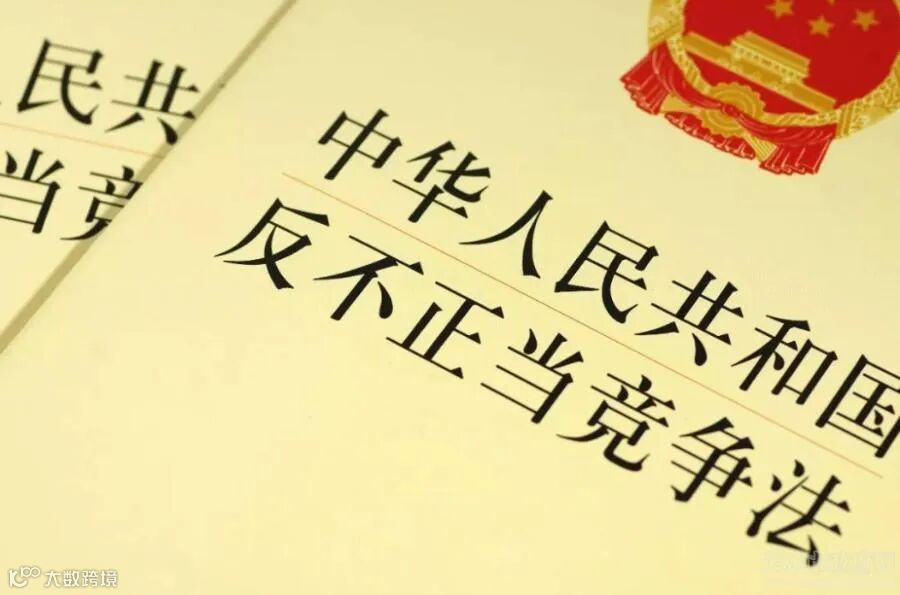 民共
当竞
中华人民共和国
反不正当竞争法
大数跨境